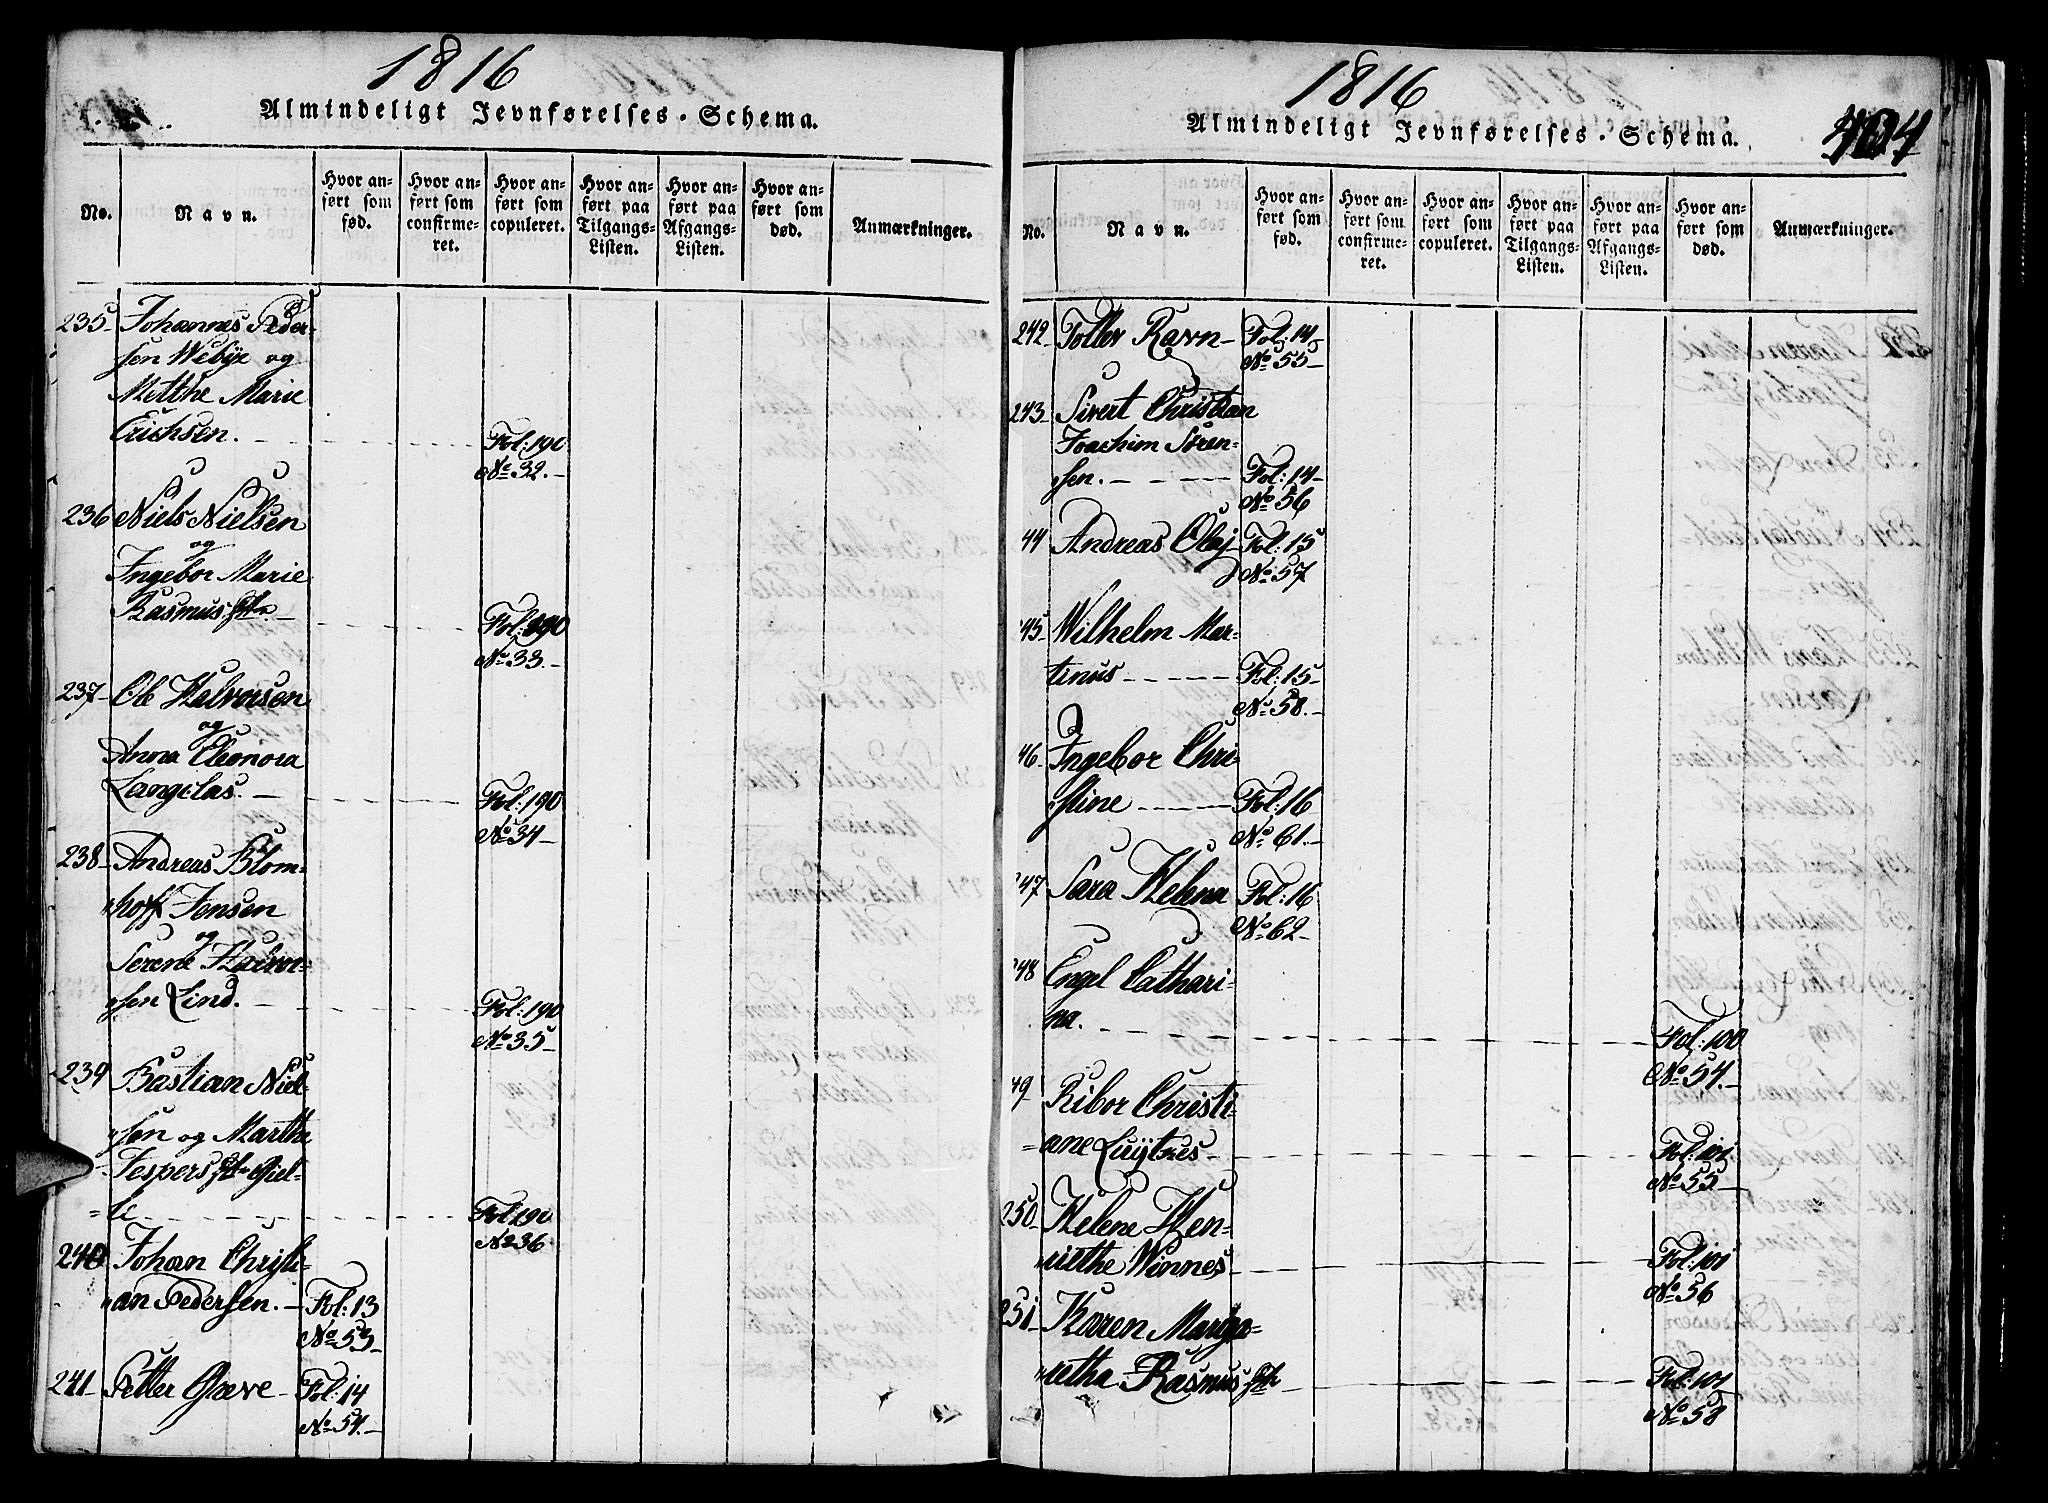 1816
Almindeligt Jevnførelses-Schema.
No.
Navn.
Hvor anført som fød.
Hvor anført som confirmeret.
Hvor anført som copuleret.
Hvor anført paa Tilgangs-Listen.
Hvor anført paa Afgangs-Listen.
Hvor anført som død.
Anmærkninger.
235 Johannes Peder-
sen Webÿe og
Metthe Marie
Erichsen. Fol: 190
No 32.
236 Niels Nielsen
og
Ingebor Marie
Rasmus Fol: 190
No 33.
237 Ole Halvorsen
og
Anna Eleonora
Langelas. Fol: 190
No 34
238 Andreas Blom-
hoff Jensen
og
Serene Halvor=
sen Lind. Fol: 190
No 35
239 Bastian Niel-
sen og Marthe
Jespers Giel-
te Fol 190
No 36
240 Johan Christi-
an Pedersen. Fol: 13
No 53
241 Petter Greve Fol: 14
No 54.
1816
Almindeligt Jevnførelses-Schema.
404
No.
Navn.
Hvor anført som fød.
Hvor anført som confirmeret.
Hvor anført som copuleret.
Hvor anført paa Tilgangs-Listen.
Hvor anført paa Afgangs-Listen.
Hvor anført som død.
Anmærkninger.
242 Toller Ravn Fol: 14
No 55
243 Sivert Christian
Joachim Søren-
sen. Fol: 14
No 56
44 Andreas Olaj Fol: 15
No: 57
45 Wilhelm Mar-
tinus Fol: 15
No 58.
46 Ingebor Chri
stine Fol: 16
No 61.
47 Sara Helena Fol: 16
No 62
48 Engel Cathari-
na. Fol: 100
No 54.
49 Ribor Christi
=ane Luÿtnes Fol: 101
No 55
250 Helene Hen-
riethe Winnes Fol: 101
No 56
251 Karen Marga=
retha Rasmus Fol: 101
No 58